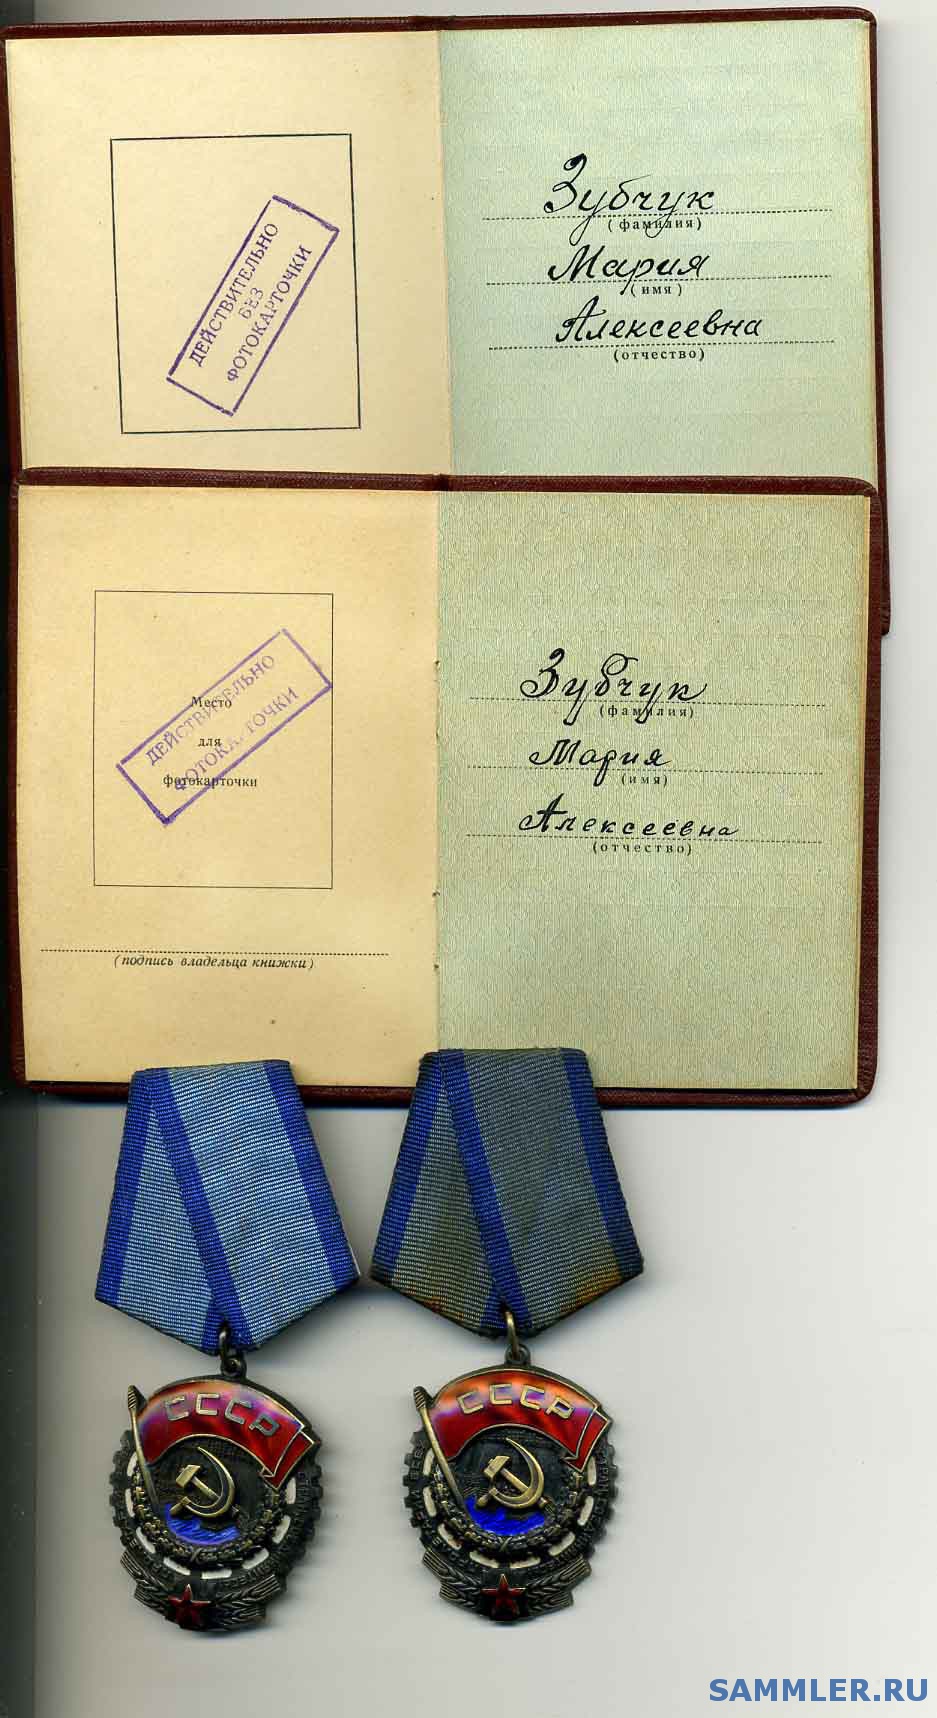 ДЕЙСТВИТЕЛЬНО
БЕЗ
ФОТОКАРТОЧКИ
Зубчук
(фамилия)
Мария
(имя)
Алексеевна
(отчество)
ДЕЙСТВИТЕЛЬНО
ФОТОКАРТОЧКИ
Место
для
фотокарточки
(подпись владельца книжки)
Зубчук
(фамилия)
Мария
(имя)
Алексеевна
(отчество)
СССР
СССР
SAMMLER.RU